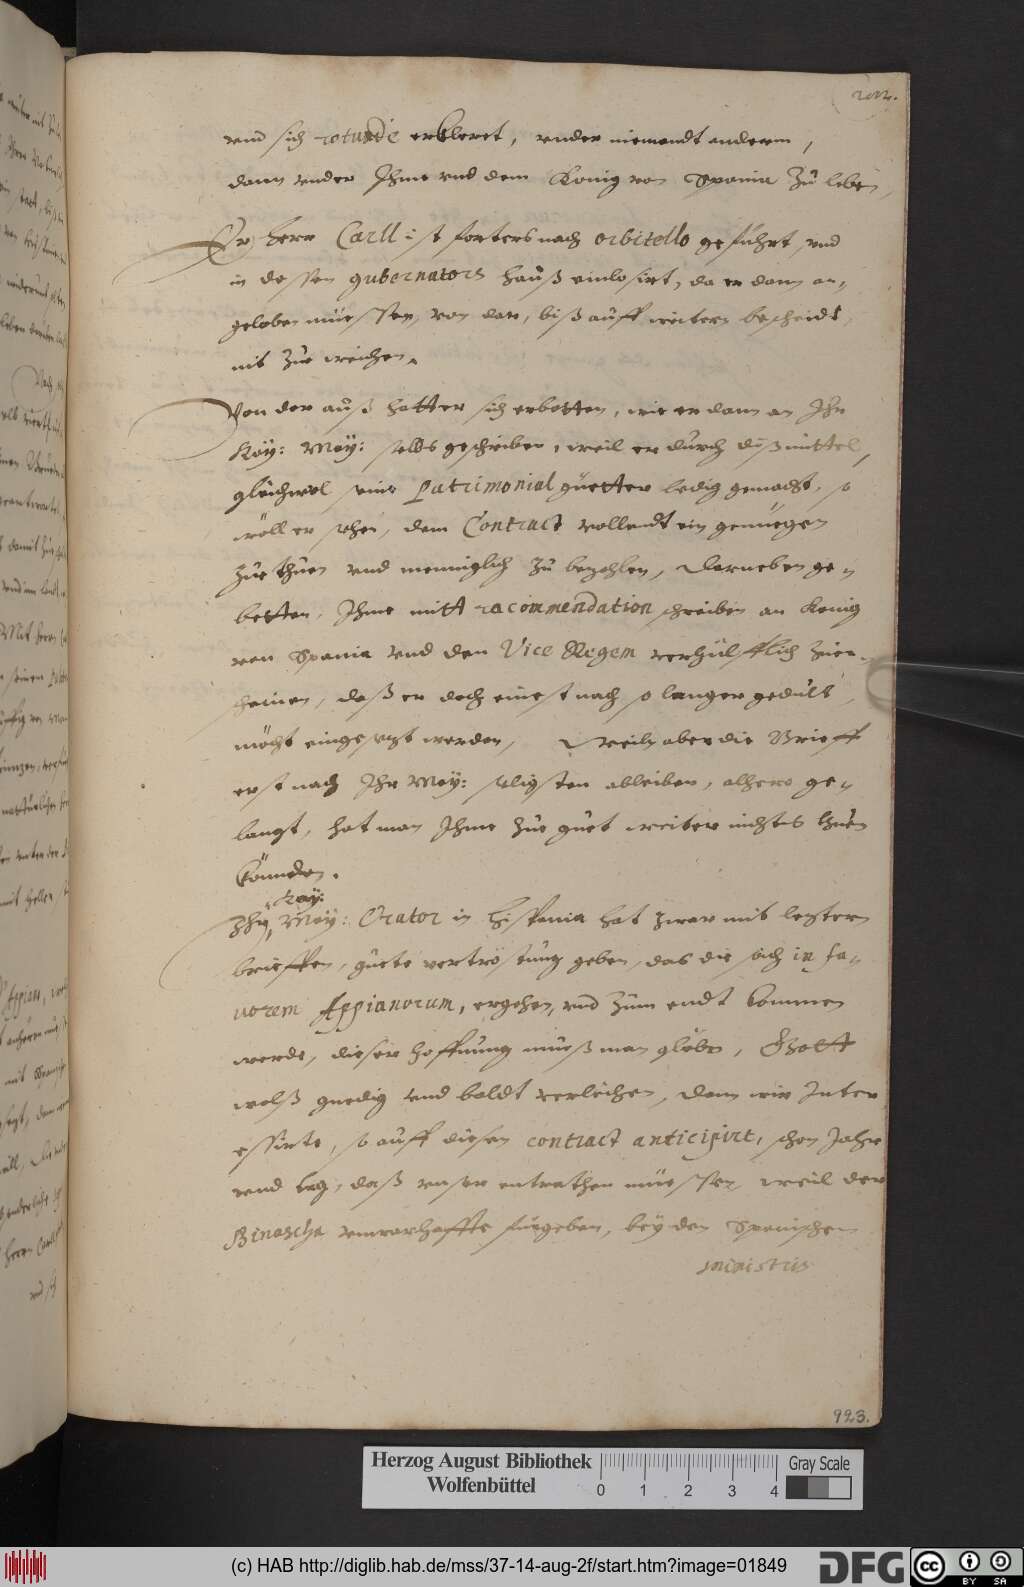 vnd sich rotunde erkleret, vnder niemandt anderm,
dann vnder Ihme vnd dem König von Spania zu leben,
Er herr Carll ist forters nach orbitello geführt, vnd
in dessen gubernators hauß einlosirt, da er dann an-
geloben müessen, von dar, biß auff weitern bescheidt,
nit zue weichen.
Von dar auß hatt er sich erbotten, wie er dann an Ihr
Kay: May: selbs geschriben, weil er durch diß mittel,
gleichwol seine Patrimonial güetter ledig gemacht, so
wöll er sehen, dem Contract vollendt ein genüegen
zue thuen vnd menniglich zu bezahlen, darneben ge-
betten, Ihme mitt racommendation schreiben an König
von Spania vnd den Vice Regem verhülfflich zuer-
scheinen, daß er doch einest nach so langer gedult,
möcht eingesezt werden, Weiln aber die Brieff
erst nach Ihr May: seligsten ableiben, alhero ge-
langt, hat man Ihme zue guet weiter nichts thuen
könnden.
Kay:
Ihr, May: Orator in Hispania hat zwar mit leztern
brieffen, guete vertröstung geben, das die sach in fa-
uorem Appianorum, ergehen, vnd zum endt kommen
werde, dieser hoffnung mueß man gleben, Gott
wolß gnedig vnd baldt verleichen, dann wir Inter
essirte, so auff diesen contract anticipirt, schon Jahr
vnd tag, daß vnser entrathen müessen, weil der
Binascha vnwarhaffte fürgeben, bey den Spanischen
ministris
923.
Herzog August Bibliothek
Wolfenbüttel
0 1 2 3 4
Gray Scale
(c) HAB http://diglib.hab.de/mss/37-14-aug-2f/start.htm?image=01849
DFG
cc BY SA